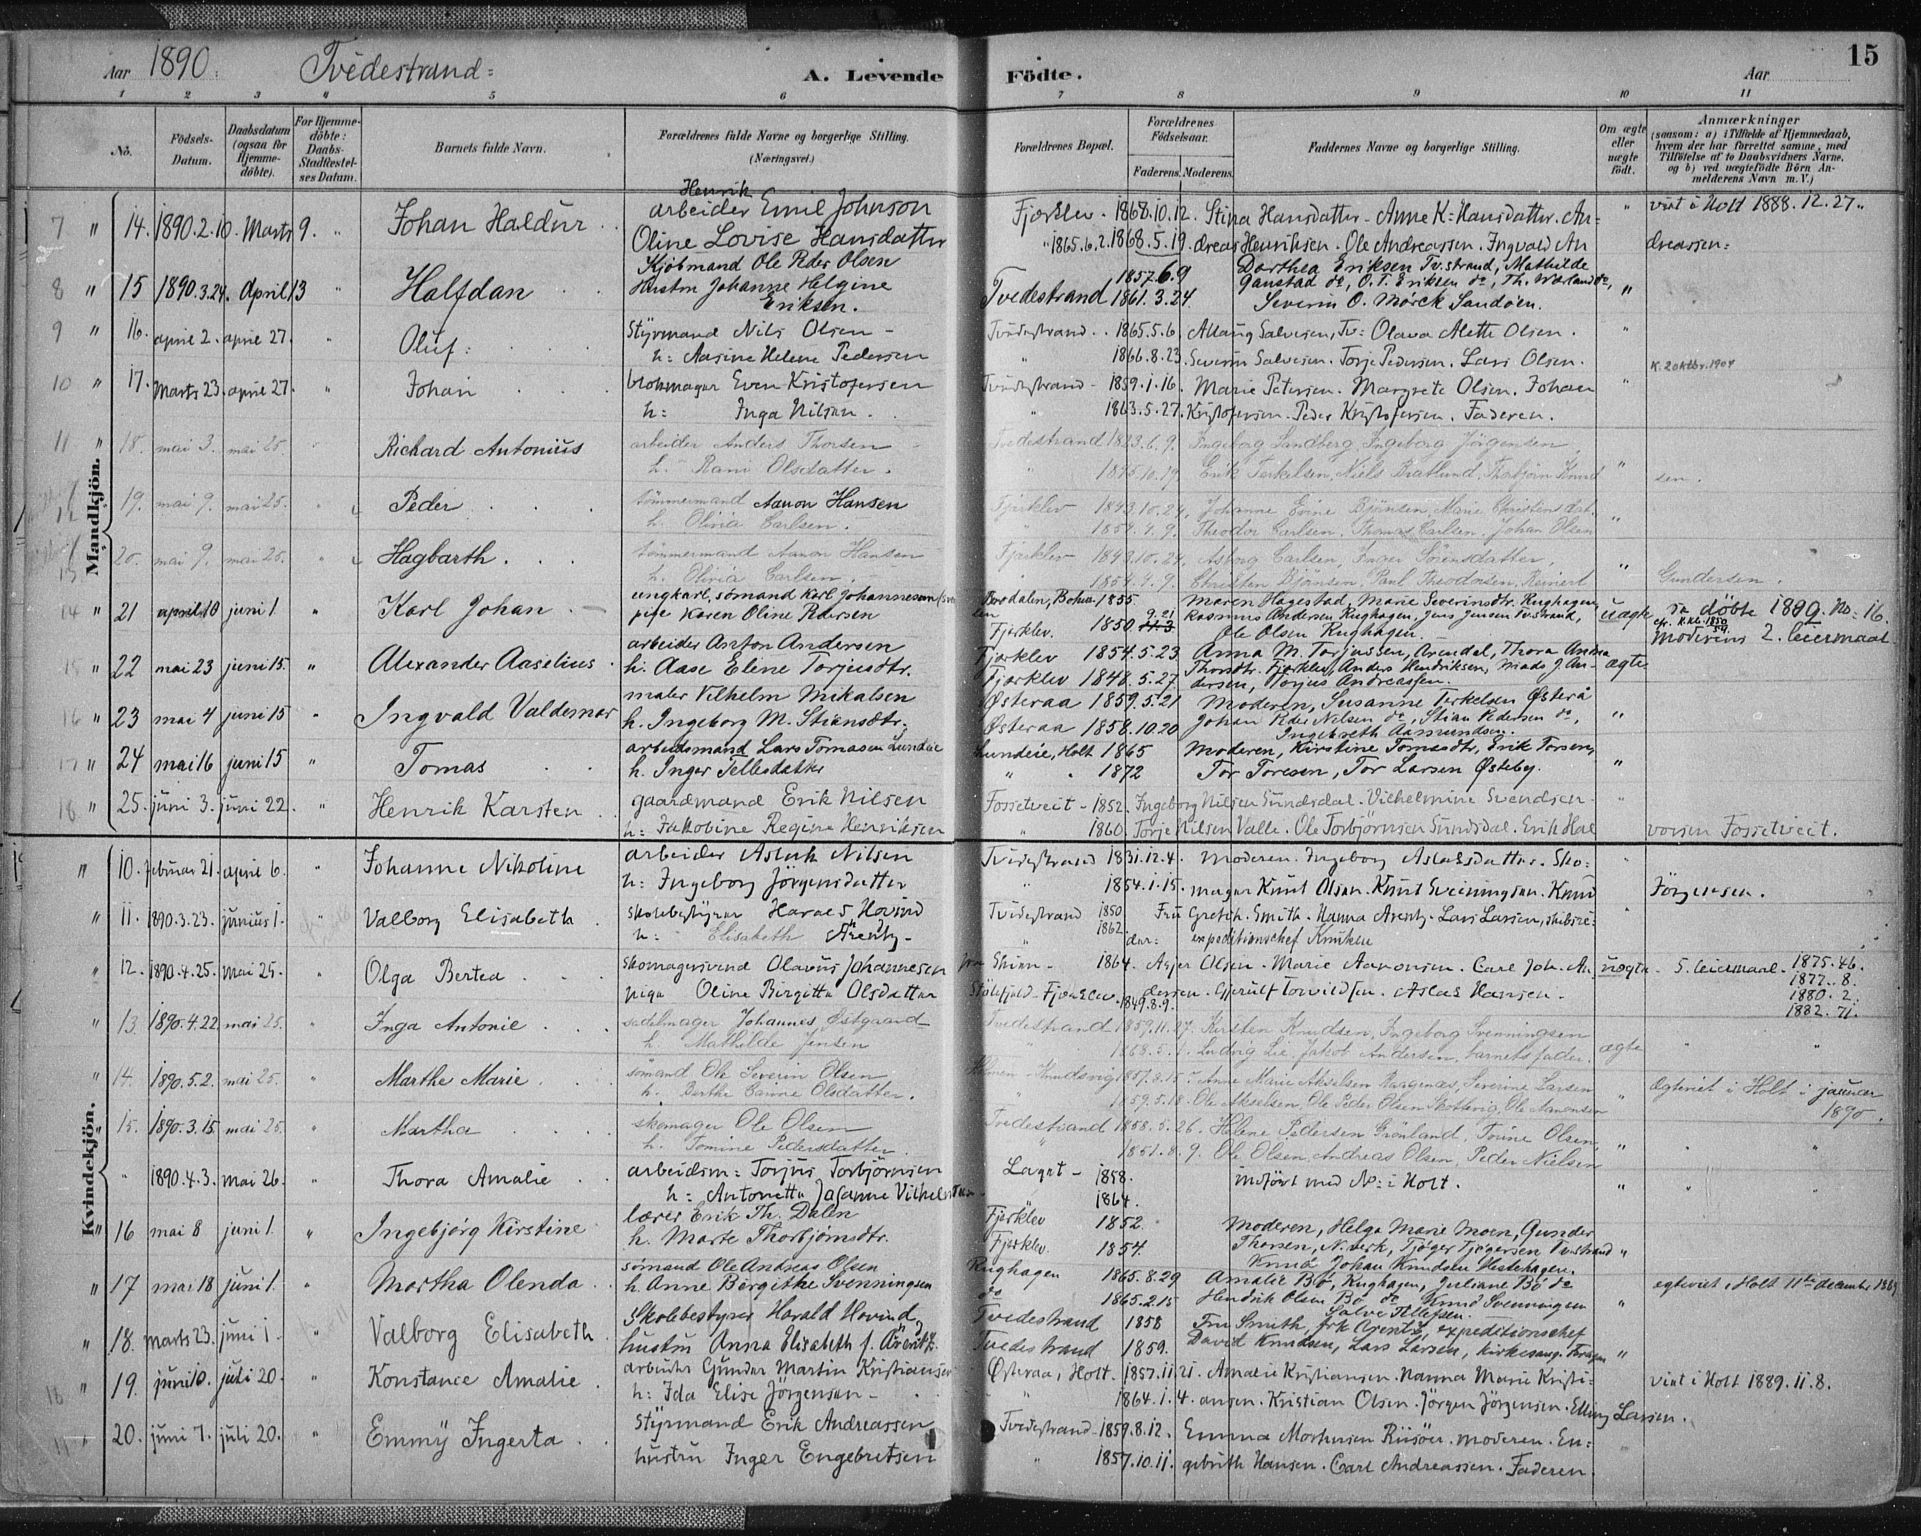 Aar 1890. Tvedestrand: A. Levende Födte. Aar 15
1 2 3 4 5 6 7 8 9 10 11
No. Födsels-Datum. Daabsdatum (ogsaa for Hjemmedöbte). For Hjemmedöbte: Daabs-Stadfæstelses Datum. Barnets fulde Navn. Forældrenes fulde Navne og borgerlige Stilling. (Næringsvei.) Forældrenes Bopæl. Forældrenes Födselsaar. Faderens. Moderens. Faddernes Navne og borgerlige Stilling. Om ægte eller uægte födt. Anmærkninger (saasom: a) i Tilfælde af Hjemmedaab, hvem der har forrettet samme, med Tilföielse af to Daabsvidners Navne, og b) ved uægtefödte Börn Anmelderens Navn m. V.)
Mandkjön.
Henrik
7 " 14. 1890.2.10. Marts 9. " Johan Haldur arbeider Emil Johnson Fjærklev. 1868.10.12. Stina Hansdatter. Anne K: Hansdatter. An= " viet i Holt 1888.12.27.
Oline Lovise Hansdatter " 1865.6.2. 1868.5.19. dreas Henriksen. Ole Andreassen. Ingvald An dreassen:
Kjöbmand Ole Peder Olsen 1857.6.9 Dorthea Eriksen Tv.strand, Mathilde
8 " 15 1890.3.24. April 13 " Halfdan Hustru Johanne Helgine Tvedestrand 1861.3.24 Ganstad do, O. T. Eriksen do, Th. Wærland do, "
Eriksen. Severin O. Mørck Sandöen.
9 " 16. april 2. april 27. " Oluf: Styrmand Nils Olsen Tvedestrand. 1865.5.6. Aslaug Salvesen, Tv: Olava Alette Olsen. "
h: Aasine Helene Pedersen " 1866.8.23. Severin Salvesen. Torje Pedersen. Lars Olsen.
K. 2 oktbr. 1904
10 " 17. Marts 23. april 27. " Johan blokmager Even Kristofersen Tvedestrand 1859.1.16. Marie Petersen. Margrete Olsen. Johan "
h: Inga Nilsen. " 1863.5.27. Kristofersen. Peder Kristofersen. Faderen.
11 " 18. mai 3. mai 25. Richard Antonius arbeider Anders Thorsen Tvedestrand 1823.6.9. Ingeborg Sandberg, Ingeborg Jörgensen
h. Rani Olsdatter. " 1845.10.19. Erik Terkelsen, Niels Bratlund, Thorbjörn Knud " sen.
12 19. mai 9. mai 25. " Peder tömmermand Aanon Hansen Fjærklev 1843.10.24, Johanne Evine Björnsen, Marie Christine
h. Olivia Carlsen. " 1854.4.9. Theodor Carlsen, Thomas Carlsen, Johan Olsen "
13 20. mai 9. mai 25. " Hagbarth. tömmermand Aanon Hansen Fjærklev 1843.10.24, Asborg Carlsen, Inger Sörensdatter,
h. Olivia Carlsen. " 1854.4.9. Christen Björnsen, Paul Theodorsen, Reinert " Gundersen.
14 " 21 april 10 juni 1 " Karl Johan ungkarl, sömand Karl Johannesen 1855 Maren Hagestad, Marie Severinsdtr. Rughagen uægte sa döbte 1889 No: 16.
pige Karen Oline Pedersen Fjærklev. 1850 9.21 Rasmus Andersen Rughagen, Jens Jensen Tv.strand,
Ole Olsen Rughagen. Moderens 2. leiermaal
15 " 22 mai 23 juni 15. " Alexander Aaselius arbeider Anton Andersen Fjærklev 1854.5.23 Anna M. Torjussen, Arendal, Thora Andrea ægte
h: Aase Elene Torjusdtr. Fjærklev 1848.5.27. Thorsdtr. Fjærklev, Anders Hendriksen, Mads J. An-
dersen, Torjus Andreassen.
16 " 23 mai 4 juni 15 " Ingvald Valdemar maler Vilhelm Mikalsen Østeraa 1859.5.21 Moderen, Susanne Terkelsen Østerå
h. Ingeborg M. Stiansdtr. Østeraa 1858.10.20 Johan Peder Nilsen do, Stian Pedersen do, "
Ingebreth Aamundsen.
17 " 24 mai 16 juni 15 " Tomas arbeidsmand Lars Tomasen Lundeie Lundeie, Holt 1865 Moderen, Kirstine Tomasdtr, Erik Torsen,
h. Inger Tellefsdatter " " 1872 Tor Toresen, Tor Larsen Østeby. "
18 " 25. juni 3. juni 22. " Henrik Karsten gaardmand Erik Nilsen Fossetveit 1852. Ingeborg Nilsen Sundsdal. Vilhelmine Svendsen. "
h: Jakobine Regine Henriksen " 1860. Torje Nilsen Valle. Ole Torbjörnsen Sundsdal. Erik Hal vorsen Fossetveit.
Kvindekjön.
" 10. Februar 21. april 6. " Johanne Nikoline arbeider Aslak Nilsen Tvedestrand 1831.12.4. Moderen. Ingeborg Aslaksdatter. Sko= "
h: Ingeborg Jörgensdatter " 1854.1.15. mager Knut Olsen. Knut Sveinungsen. Knud Jörgensen.
" 11. 1890.3.23. junius 1. " Valborg Elisabeth Skolebestyrer Harald Hovind Tvedestrand 1850 Fru Greteh. Smith. Nanna Arentz. Lars Larsen, skibsre= "
h: Elisabeth Arentz " 1862. der: expeditionschef Knutsen
" 12. 1890.4.25. Mai 25. " Olga Bertea Skomagersvend Olavus Johannesen fra Skien 1864. Asjer Olsen. Marie Aanonsen. Carl Joh. An uægte. 5. leiermaal. 1875.46.
pige Oline Birgitte Olsdatter Fjærklev. 1849.8.9. dersen. Gjerulf Torvildsen. Aslak Hansen. 1877.8.
1880.2.
1882.71.
" 13. 1890.4.22. mai 25. " Inga Antonie sadelmager Johannes Østgaard Tvedestrand 1859.11.27. Kirsten Knudsen, Ingeborg Svenningsen
h. Mathilde Jensen " 1868.5.1. Ludvig Lie, Jakob Andersen, barnets fader. ægte "
" 14. 1890.5.2. mai 25. " Marthe Marie sömand Ole Severin Olsen 1857.8.15. Anne Marie Akselsen Raagenæs, Severine Larsen
h. Berthe Olsdatter. " 1859.5.18. Ole Akselsen, Ole Peder Olsen Skottevig, Ole Aanonsen " Egteviet i Holt i januar
1890.
" 15. 1890.3.15. mai 25. " Martha skomager Ole Olsen Tvedestrand 1858.5.26. Helene Pedersen Grönland, Tomine Olsen,
h. Tomine Pedersdatter. " 1851.8.9. Ole Olsen, Andreas Olsen, Peder Nielsen "
" 1890.4.3. mai 26. " Thora Amalie arbeidsm: Torjus Torbjörnsen Laget 1858. indfört med No: i Holt. "
h: Antonette Josanne Vilhelmsen. 1864.
" 16 mai 8 juni 1. " Ingebjörg Kirstine lærer Erik Th. Dalen Fjærklev 1852. Moderen, Helga Marie Moen, Gunder
h. Marte Thorbjörnsdtr. Fjærklev. 1854. Thorsen, N. verk, Tjöger Tjögersen Tv.strand "
Knud Johan Knudsen Hestehagen.
" 17 mai 18 juni 1. " Martha Olenda sömand Ole Andreas Olsen Rughagen 1865.8.29 Amalie Bö, Rughagen, Juliane Bö do egteviet i Holt 11te december 1889
h. Anne Bergitte Svenningsen do 1865.2.15 Hendrik Olsen Bö do Knud Svenningsen "
Salve Tellefsen.
" 18. marts 23. juni 1. " Valborg Elisabeth Skolebestyrer Harald Hovind, Tvedestrand 1858 Fru Smith, frk Arentz, expeditionschef
hustru Anna Elisabeth f. Arentz. Tvedestrand 1859. David Knudsen, Lars Larsen, kirkesang. "
18 " 19. juni 10. juli 20. " Konstance Amalie arbeider Gunder Martin Kristiansen Østeraa, Holt. 1857.11.21. Amalie Kristiansen. Nanna Marie Kristi= viet i Holt 1889.11.8.
h: Ida Elise Jörgensen " 1864.1.4. ansen. Kristian Olsen. Jörgen Jörgensen. Elling Larsen.
" 20. juni 7. juli 20. " Emmy Ingerta Styrmand Erik Andreassen Tvedestrand 1859.8.12. Emma Mortensen Riisöer. moderen. En= "
hustru Inger Engebretsen " 1857.10.11. gebrith Hansen. Carl Andreassen. Faderen.